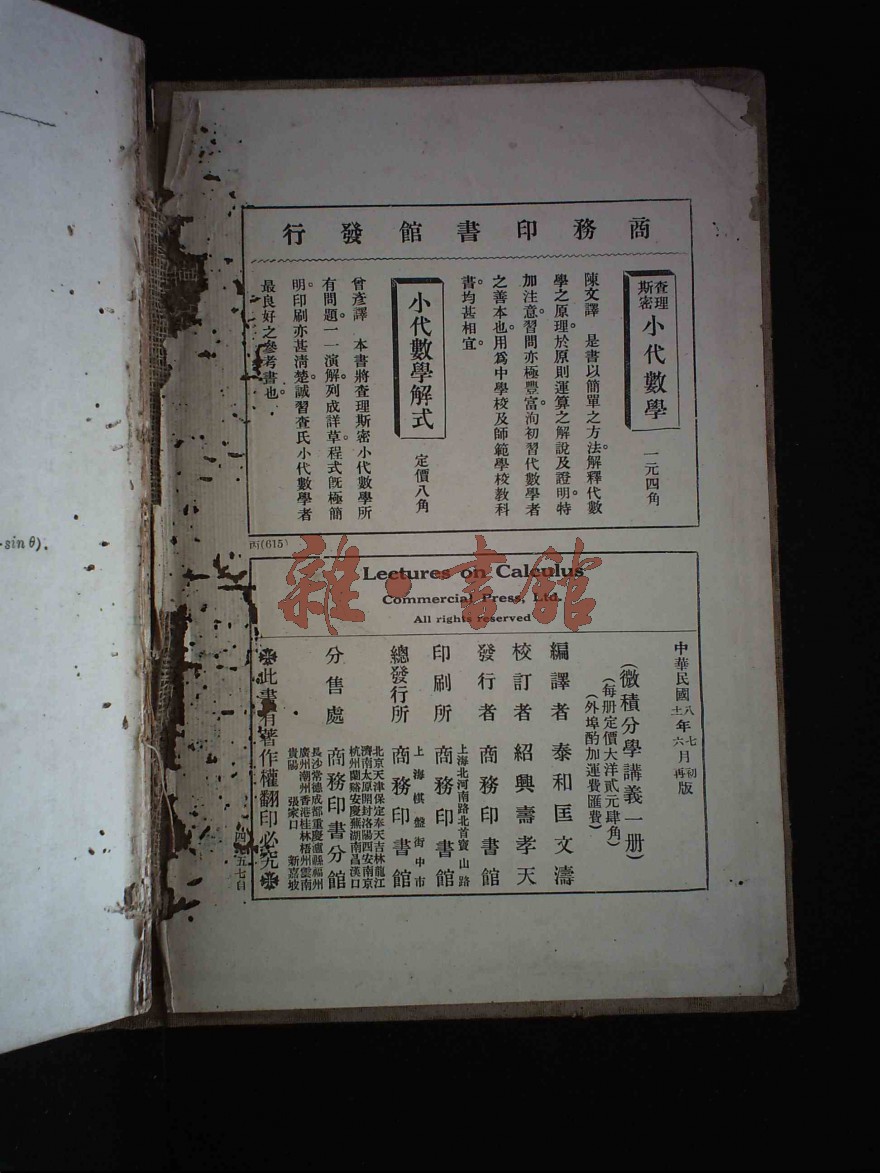 sin θ).
商務印書館發行
查理斯密 小代數學 一元四角
陳文譯 是書以簡單之方法。解釋代數
學之原理。於原則運算之解說及證明。特
加注意。習問亦極豐富。洵初習代數學者
之善本也。用爲中學校及師範學校教科
書均甚相宜。
小代數學解式 定價八角
曾彥譯 本書將查理斯密小代數學所
有問題。一一演解列成詳草。程式既極簡
明。印刷亦甚清楚。誠習查氏小代數學者
最良好之參考書也。
丙(615)
Lectures on Calculus
Commercial Press, Ltd.
All rights reserved
雜·書館
中華民國八年七月初版
十六再
(微積分學講義一册)
(每册定價大洋貳元肆角)
(外埠酌加運費匯費)
編譯者 泰和匡文濤
校訂者 紹興壽孝天
發行者 商務印書館
上海北河南路北首寶山路
印刷所 商務印書館
上海棋盤街中市
總發行所 商務印書館
北京天津保定奉天吉林龍江
濟南太原開封洛陽西安南京
杭州蘭谿安慶蕪湖南昌漢口
分售處 商務印書分館
長沙常德成都重慶瀘縣福州
廣州潮州香港桂林梧州雲南
貴陽 張家口 新嘉坡
此書有著作權翻印必究
四 五七自